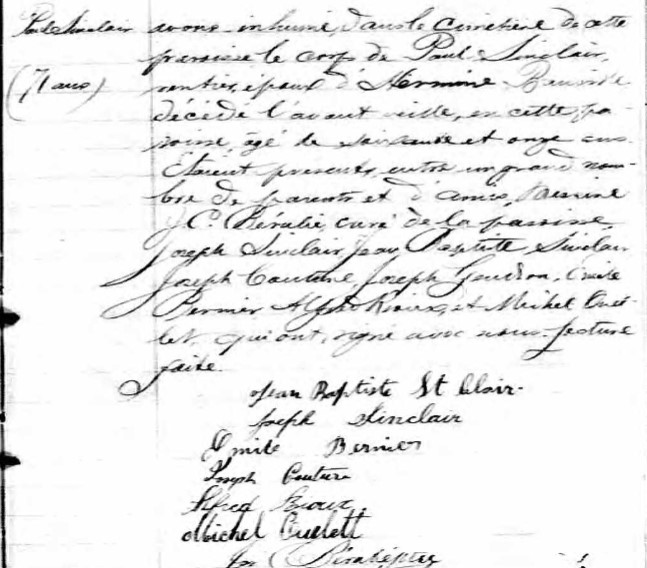 Paul Sinclair
(71 ans)
avons inhumé, dans le cimetière de cette
paroisse le corps de Paul Sinclair,
rentier, époux d'Hermine
décédé l'avant veille, en cette pa-
roisse, âgé de soixante et onze ans.
Étaient présents, outre un grand nom-
bre de parents et d'amis, Messire
J.C. curé de la paroisse,
Joseph Sinclair, Jean Baptiste Sinclair
Joseph Couture, Joseph Emile
Bernier Alfred Rioux, et Michel Ouel-
let qui ont, signé avec nous. Lecture
faite.
Jean Baptiste St Clair.
Joseph Sinclair
Emile Bernier
Joseph Couture
Alfred Rioux,
Michel Ouellett